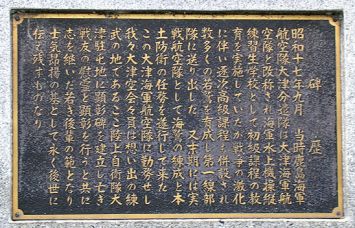 碑歴
昭和十七年九月 当時鹿島海軍
航空隊大津分遣隊は大津海軍航
空隊と改称され海軍水上機操縦
練習生学校として初級課程の教
育を実施していたが戦争の激化
に伴い逐次高級課程も併設され
数多くの若鷲を育成し第一線部
隊に送り出した 又末期には実
戦航空隊として海鷲の練成と本
土防衛の任務を遂行して来た
この大津海軍航空隊に勤務せし
我々大津空会会員は想い出の練
武の地であるここ陸上自衛隊大
津駐屯地に顕彰碑を建立し亡き
戦友の慰霊と顕彰を行うと共に
志を継いだ若き後輩の範となり
士気昂揚の基として永く後世に
伝え残すものなり